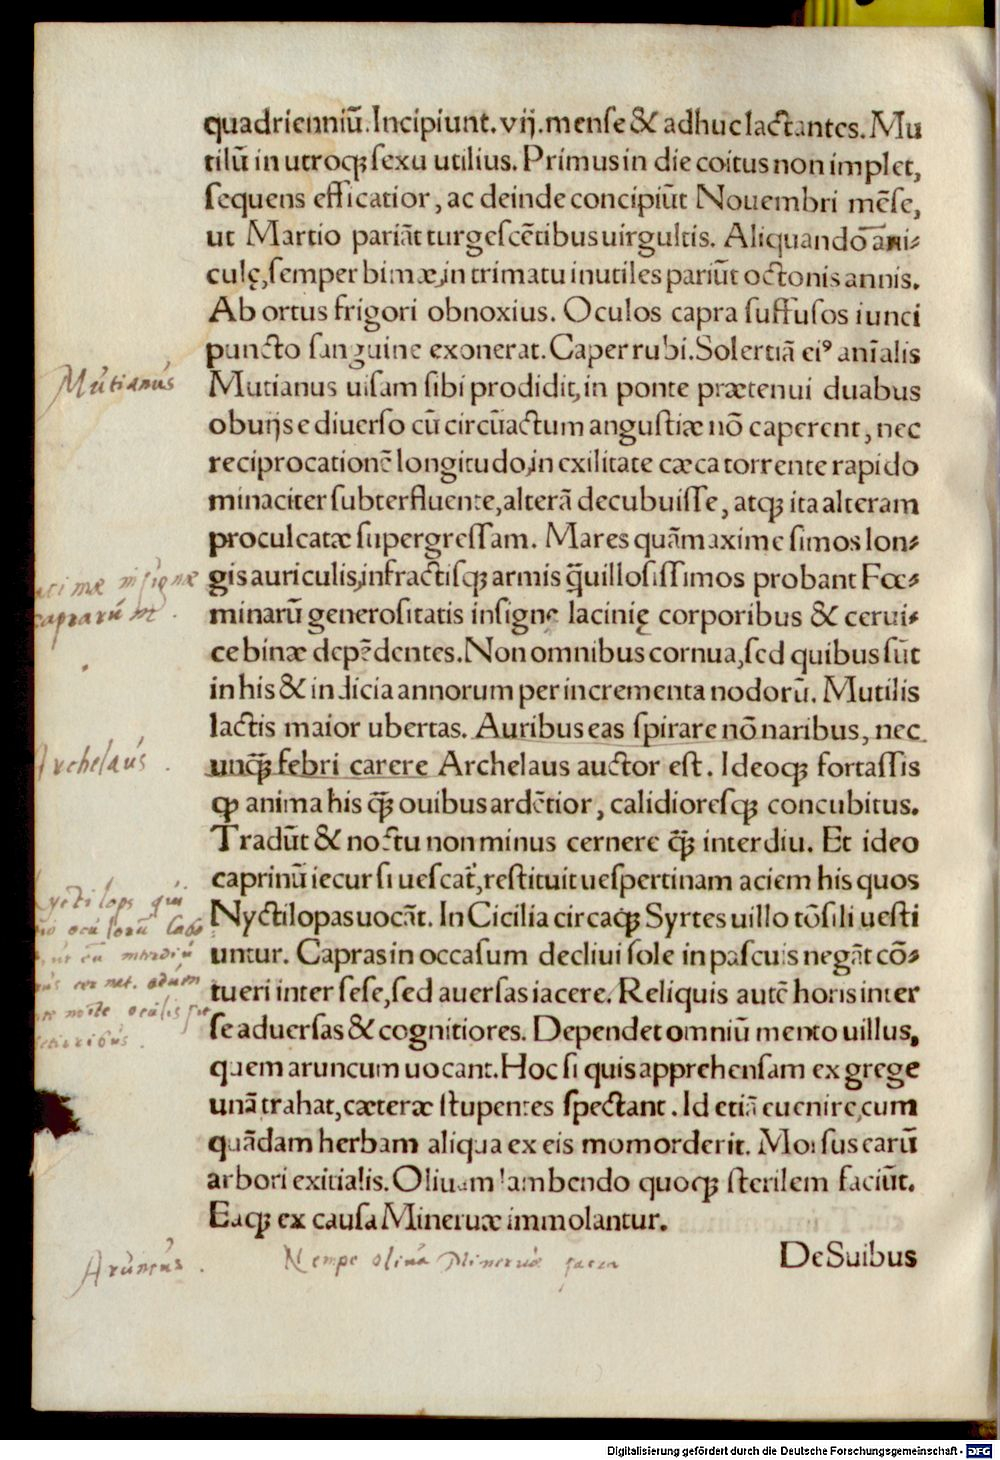 quadrienniũ. Incipiunt. vij. mense & adhuc lactantes. Mu
tilũ in utroqꝫ sexu utilius. Primus in die coitus non implet,
sequens efficatior, ac deinde concipiũt Nouembri mẽse,
ut Martio pariãt turgescẽtibus uirgultis. Aliquando ãni⸗
culę, semper bimæ, in trimatu inutiles pariũt octonis annis.
Ab ortus frigori obnoxius. Oculos capra suffusos iunci
puncto sanguine exonerat. Caper rubi. Solertiã eiꝰ anĩalis
Mutianus
Mutianus uisam sibi prodidit, in ponte prætenui duabus
obuijs e diuerso cũ circũactum angustiæ nõ caperent, nec
reciprocationẽ longitudo, in exilitate cæca torrente rapido
minaciter subterfluente, alterã decubuisse, atqꝫ ita alteram
proculcatæ supergressam. Mares quãmaxime simos lon⸗
insignæ
gis auriculis, infractisqꝫ armis q̃uillosissimos probant Fœ⸗
caprarũ
minarũ generositatis insigne lacinię corporibus & cerui⸗
ce binæ depẽdentes. Non omnibus cornua, sed quibus sũt
in his & indicia annorum per incrementa nodorũ. Mutilis
lactis maior ubertas. Auribus eas spirare nõ naribus, nec
Archelaus.
unq̃ꝫ febri carere Archelaus auctor est. Ideoqꝫ fortassis
ꝙ anima his q̃ꝫ ouibus ardẽtior, calidioresqꝫ concubitus.
Tradũt & noctu non minus cernere q̃ꝫ interdiu. Et ideo
caprinũ iecur si uescat᷑, restituit uespertinam aciem his quos
Nyctilops qui
Nyctilopas uocãt. In Cicilia circaqꝫ Syrtes uillo tõsili uesti
oculorũ labo
untur. Capras in occasum decliui sole in pascuis negãt cõ⸗
cũ interdiũ
tueri inter sese, sed auersas iacere. Reliquis autẽ horis inter
cernet.
se aduersas & cognitiores. Dependet omniũ mento uillus,
nocte oculis
quem aruncum uocant. Hoc si quis apprehensam ex grege
unã trahat, cæteræ stupentes spectant. Id etiã euenire, cum
quãdam herbam aliqua ex eis momorderit. Morsus earũ
arbori exitialis. Oliuam lambendo quoqꝫ sterilem faciũt.
Eaqꝫ ex causa Mineruæ immolantur.
De Suibus
Aruncus.
Nempe oliua Mineruæ sacra
Digitalisierung gefördert durch die Deutsche Forschungsgemeinschaft - DFG